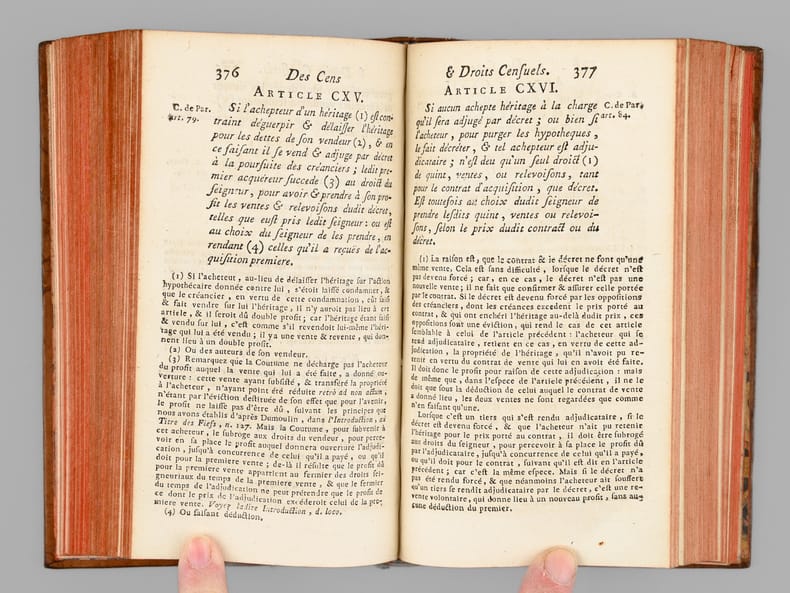 376 Des Cens
ARTICLE CXV.
C. de Par.
art. 79.
Si l'achepteur d'un héritage (1) est con-
traint déguerpir & délaisser l'héritage
pour les dettes de son vendeur (2), & en
ce faisant il se vend & adjuge par décret
à la poursuite des créanciers ; ledit pre-
mier acquéreur succede (3) au droict du
seigneur, pour avoir & prendre à son pro-
fit les ventes & relevoisons dudit décret,
telles que eust pris ledit seigneur : ou est
au choix du seigneur de les prendre, en
rendant (4) celles qu'il a reçues de l'ac-
quisition premiere.
(1) Si l'acheteur, au-lieu de délaisser l'héritage sur l'action
hypothécaire donnée contre lui, s'étoit laissé condamner, &
que le créancier, en vertu de cette condamnation, eût saisi
& fait vendre sur lui l'héritage, il n'y auroit pas lieu à cet
article, & il seroit dû double profit ; car l'héritage étant saisi
& vendu sur lui, c'est comme s'il revendoit lui-même l'héri-
tage qui lui a été vendu ; il y a une vente & revente, qui don-
nent lieu à un double profit.
(2) Ou des auteurs de son vendeur.
(3) Remarquez que la Coutume ne décharge pas l'acheteur
du profit auquel la vente qui lui a été faite, a donné ou-
verture : cette vente ayant subsisté, & transféré la propriété
à l'acheteur, n'ayant point été réduite retrò ad non actum,
n'étant par l'éviction destituée de son effet que pour l'avenir,
le profit ne laisse pas d'être dû, suivant les principes que
nous avons établis d'après Dumoulin, dans l'Introduction, au
Titre des Fiefs, n. 127. Mais la Coutume, pour subvenir à
cet acheteur, le subroge aux droits du vendeur, pour perce-
voir en sa place le profit auquel donnera ouverture l'adjudi-
cation, jusqu'à concurrence de celui qu'il a payé, ou qu'il
doit pour la premiere vente ; de-là il résulte que le profit dû
pour la premiere vente appartient au fermier des droits sei-
gneuriaux du temps de la premiere vente, & que le fermier
du temps de l'adjudication ne peut prétendre que le profit de
ce dont le prix de l'adjudication excéderoit celui de la pre-
miere vente. Voyez ladite Introduction, d. loco.
(4) Ou faisant déduction.
& Droits Censuels. 377
ARTICLE CXVI.
C. de Par.
art. 84.
Si aucun achepte héritage à la charge
qu'il sera adjugé par décret ; ou bien si
l'acheteur, pour purger les hypotheques,
le fait décréter, & tel achepteur est adju-
dicataire ; n'est deu qu'un seul droict (1)
de quint, ventes, ou relevoisons, tant
pour le contrat d'acquisition, que décret.
Est toutefois au choix dudit seigneur de
prendre lesdits quint, ventes ou relevoi-
sons, selon le prix dudit contract ou du
décret.
(1) La raison est, que le contrat & le décret ne font qu'une
même vente. Cela est sans difficulté, lorsque le décret n'est
pas devenu forcé ; car, en ce cas, le décret n'est pas une
nouvelle vente ; il ne fait que confirmer & assurer celle portée
par le contrat. Si le décret est devenu forcé par les oppositions
des créanciers, dont les créances excedent le prix porté au
contrat, & qui ont enchéri l'héritage au-delà dudit prix, ces
oppositions sont une éviction, qui rend le cas de cet article
semblable à celui de l'article précédent : l'acheteur qui se
rend adjudicataire, retient en ce cas, en vertu de cette ad-
judication, la propriété de l'héritage, qu'il n'avoit pu re-
tenir en vertu du contrat de vente qui lui en avoit été faite.
Il doit donc le profit pour raison de cette adjudication : mais
de même que, dans l'espece de l'article précédent, il ne le
doit que sous la déduction de celui auquel le contrat de vente
a donné lieu, les deux ventes ne sont regardées que comme
n'en faisant qu'une.
Lorsque c'est un tiers qui s'est rendu adjudicataire, si le
décret est devenu forcé, & que l'acheteur n'ait pu retenir
l'héritage pour le prix porté au contrat, il doit être subrogé
aux droits du seigneur, pour percevoir à sa place le profit dû
par l'adjudicataire, jusqu'à concurrence de celui qu'il a payé,
ou qu'il doit pour le contrat, suivant qu'il est dit en l'article
précédent ; car c'est la même espece. Mais si le décret n'a
pas été rendu forcé, & que néanmoins l'acheteur ait souffert
qu'un tiers se rendît adjudicataire par le décret, c'est une re-
vente volontaire, qui donne lieu à un nouveau profit, sans au-
cune déduction du premier.